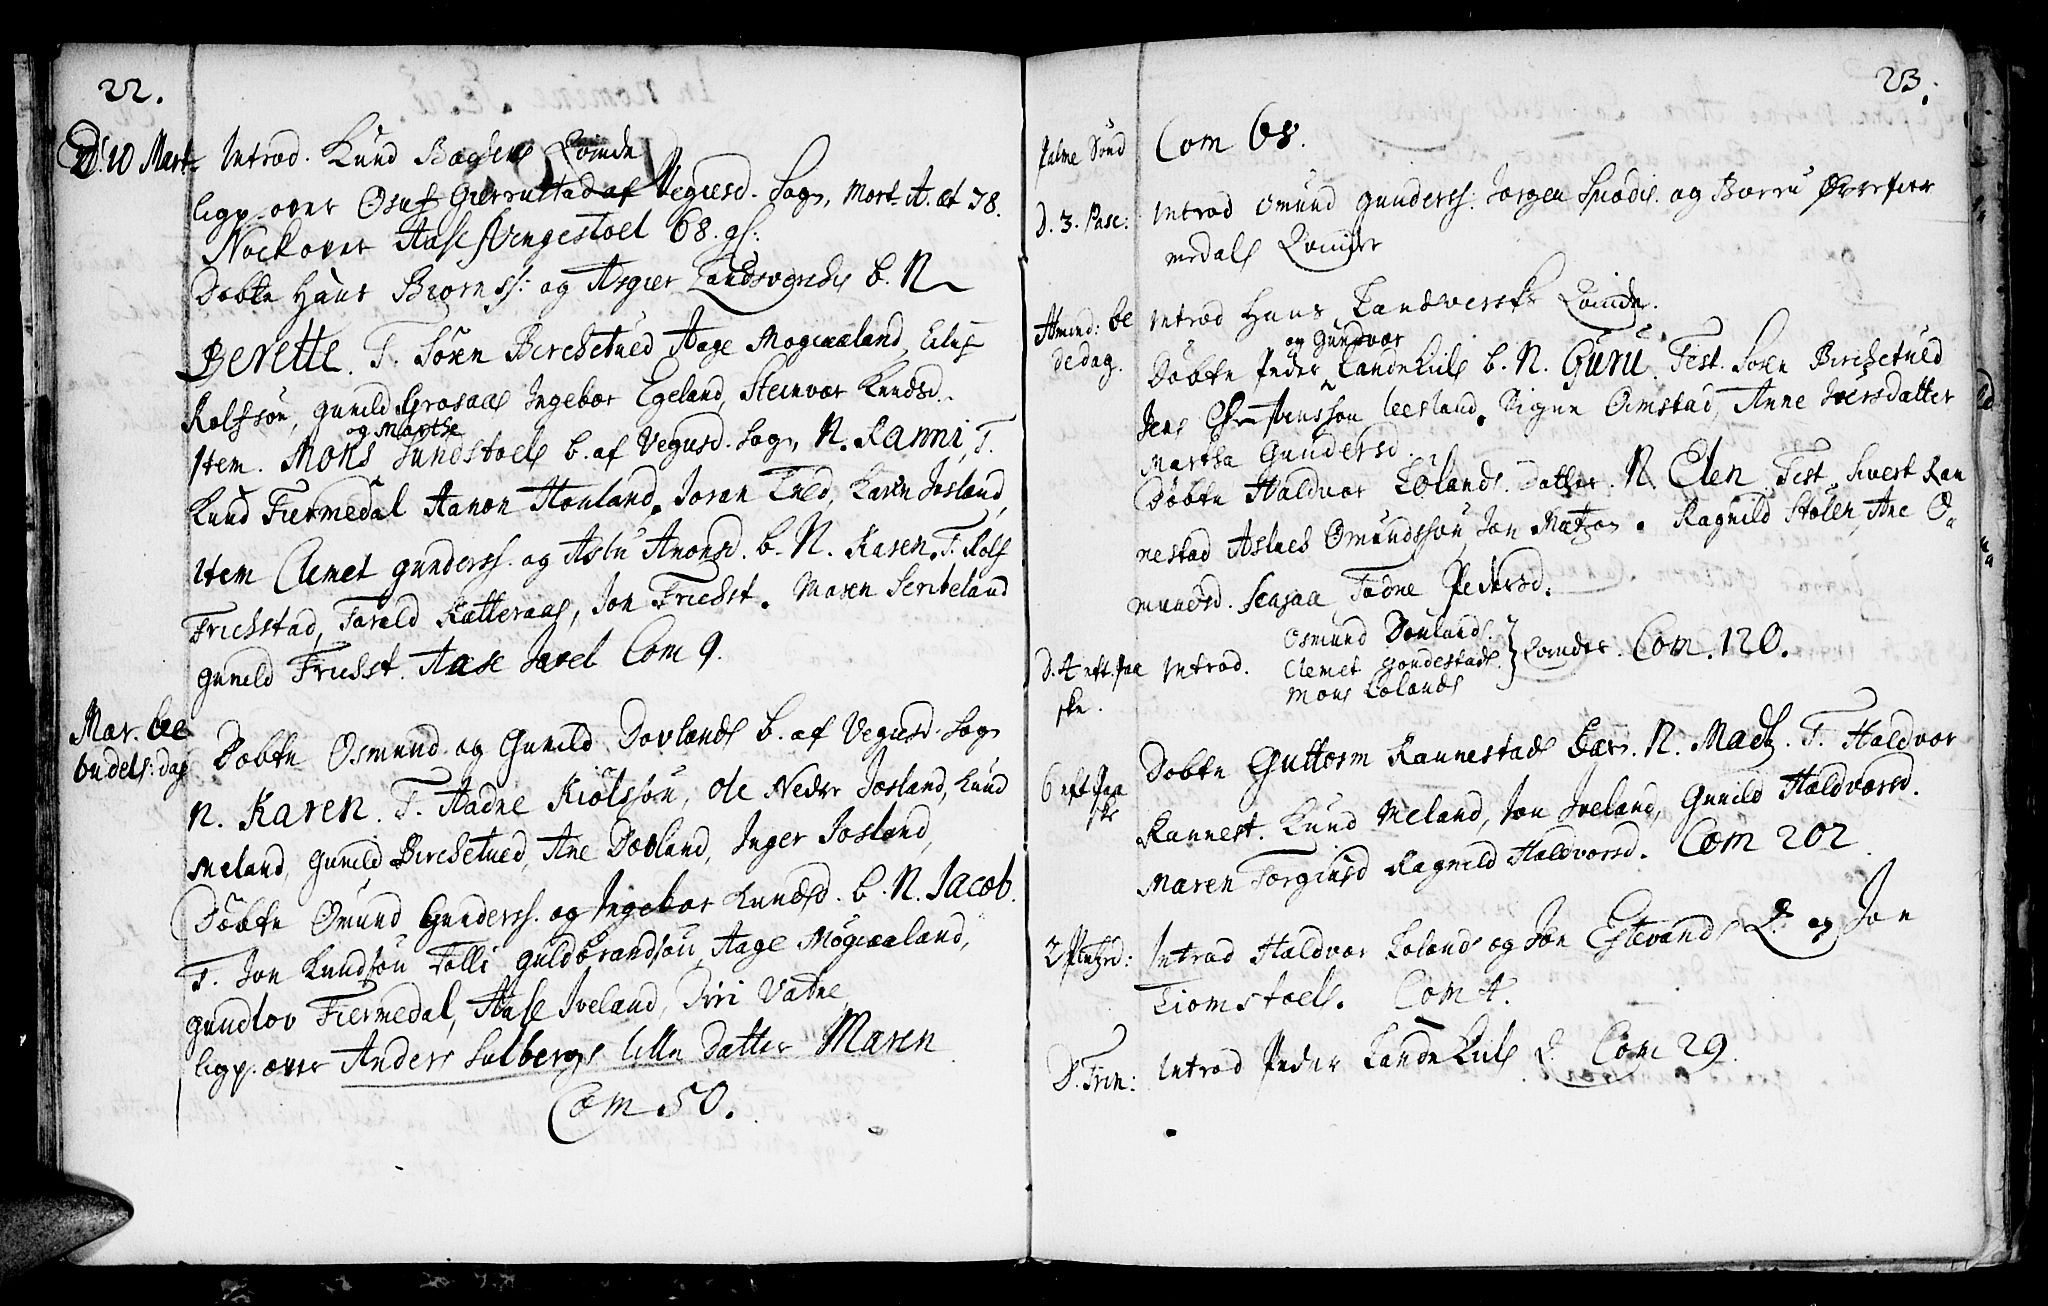 22.
D. 10 Mart. Introd. Knud Qvinde
ligp. over Osuf af Vegusd. Sogn, Mort. A. æt 78.
Nock over Aase 68. gl:
Døbte Hans Biørnss: og Asgier b. N
Berette. T. Søren Birchetued Aage Mogieaaland, Eiluf
Rolfssøn, Gunild Grosaas Ingebor Egeland, Steinvor Knudsd.
og Marthe
Item. Mons Sundstoels b. af Vegusd. Sogn, N. Ranni, T.
Knud Fiermedal Aanon Haaland, Joran Tued, Karen Josland,
Item Clemet Gunderss. og Aslu Anonsd. b. N. Karen. T. Rolf
Frichstad, Torald Katteraas, Jon Frichst. Maren Scribeland
Gunild Frichst. Aase Com 9.
Mar. be
budels: dag
Døbte Osmund og Gunild Dovlands b. af Vegusd. Sogn
N. Karen. T. Tadne Kiølssøn, Ole Nedre Josland, Knud
Meland, Gunild Birchetued, Ane Dovland, Inger Josland,
Døbte Omund Gunderss. og Ingebor Knudsd. b. N. Jacob.
T. Jon Knudsøn Tolli Guldbrandsøn, Aage Mogieaaland,
Gundlov Fiermedal, Aase Iveland, Siri Vatne
ligp. over Anders Sulbergs lille Datter Maren
Com 50.
23.
Palme Sønd Com 68.
D. 3. Pasc: Introd Omund Gunderss. Jørgen og Børru Øvre Fier
medals Qvinder
Almind: be
dedag.
Introd Hans Landvercks Qvinde.
og Gundvor
Døbte Peder Landekiils b. N. Guru. Test. Søren Birchetued
Jens Leesland. Signe Omstad, Anne Iversdatter
Martha Gundersd.
Døbte Haldvor Lølands Datter N. Elen Test. Sivert Ran
nestad Aslach Omundssøn, Jon Matzøn. Ragnild Stølen, Ane O
mundsd. Senjaa, Tadne Pedersd.
D. 4 eft. Paa
ske.
Introd. Osmund Dovlands
Clemet Gondestads
Mons Lølands
Qvinder. Com. 120.
6 eft Paa
ske
Døbte Guttorm Rannestads Barn. N. Madtz. T. Haldvor
Rannest. Knud Meland, Jon Iveland, Gunild Haldvorsd.
Maren Torgiusd Ragnild Haldvorsd. Com 202
2 Pintzed: Introd Haldvor Lølands og Jon Estevands Q. og Jon
Tiomstoels. Com 4.
D. Trin: Introd Peder Landekiils Q. Com 29.